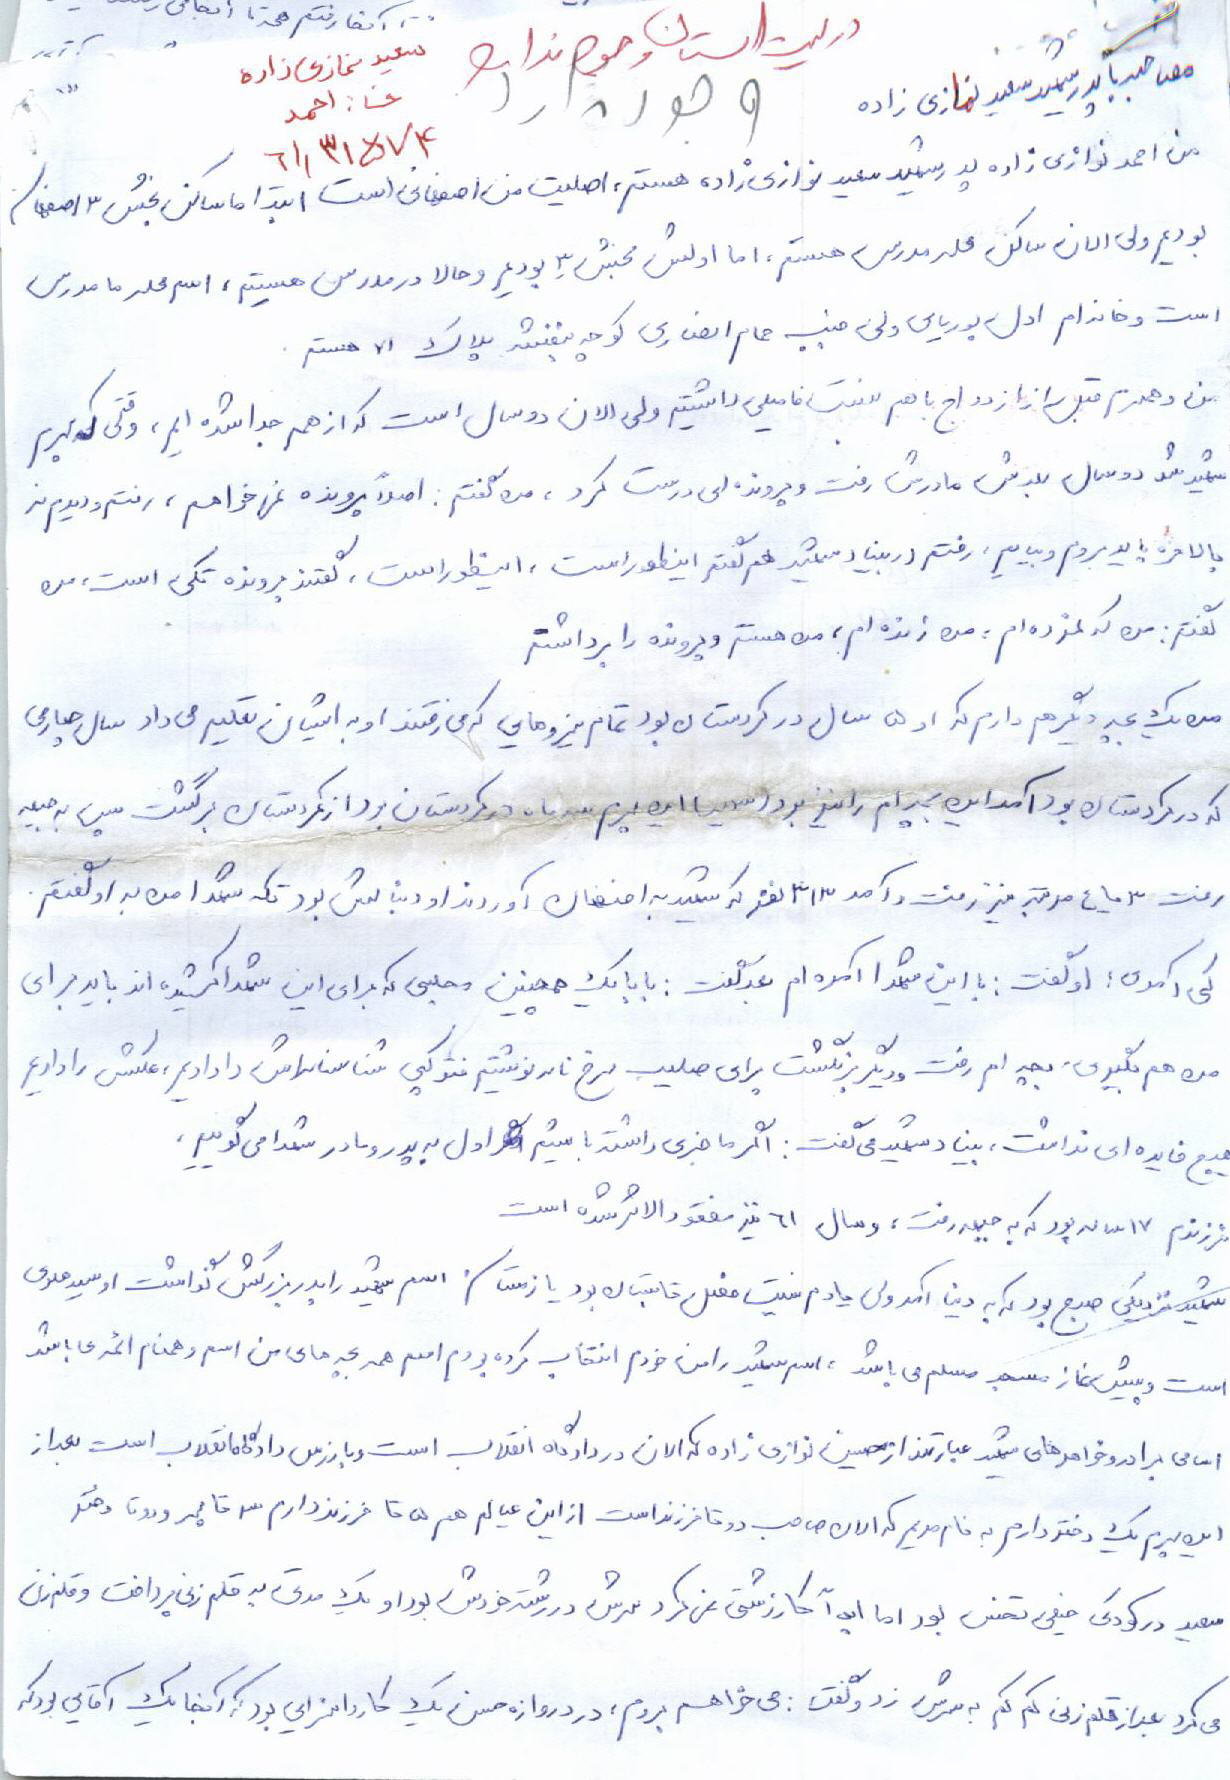 در لیست استان وجود ندارد
وجود ندارد
سعید نمازی زاده
احمد
مصاحبه با پدر شهید سعید نمازی زاده
من احمد نوازی زاده پدر شهید سعید نوازی زاده هستم، اصلیت من اصفهانی است ابتدا ما ساکن بخش ۳ اصفهان
بودیم ولی الان ساکن محله مدرس هستم، اما اولش بخش ۳ بودیم و حالا در مدرس هستیم، اسم محله ما مدرس
است و خانه‌ام اول پوریای ولی جنب حمام انصاری کوچه بنفشه پلاک ۷۱ هستم.
من و همسرم قبل از ازدواج با هم نسبت فامیلی داشتیم ولی الان دو سال است که از هم جدا شده ایم، وقتی که پسرم
شهید شد دو سال بعدش مادرش رفت و پرونده ای درست کرد، من گفتم: اصلاً پرونده نمی‌خواهم، رفتم و دیدم نه
بالاخره باید بروم و بیایم، رفتم در بنیاد شهید هم گفتم اینطور است، اینطور است، گفتند پرونده تکی است، من
گفتم: من که نمرده ام، من زنده ام، من هستم و پرونده را برداشتم
من یک بچه دیگر هم دارم که او ۵ سال در کردستان بود تمام نیروهایی که می رفتند او به ایشان تعلیم می داد سال چهارمی
که در کردستان بود آمد این بچه ام را نیز برد این پسرم سه ماه در کردستان بود از کردستان برگشت سپس به جبهه
رفت ۳ یا ۴ مرتبه نیز رفت و آمد ۳۱۳ نفر که شهید به اصفهان آوردند او دنبالش بود تکه شهدا من به او گفتم.
کی آمدی؛ او گفت: با این شهدا آمده ام بعد گفت: بابا یک همچنین مجلسی که برای این شهدا گرفته اند باید برای
من هم بگیری، بچه ام رفت و دیگر برنگشت برای صلیب سرخ نامه نوشتیم فتوکپی شناسنامه‌اش دادیم، عکسش را دادیم
هیچ فایده ای نداشت، بنیاد شهید می گفت: اگر ما خبری داشته باشیم اول به پدر و مادر شهدا می گوییم،
فرزندم ۱۷ ساله بود که به جبهه رفت، و سال ۶۱ نیز مفقودالاثر شده است
شهید نزدیکی صبح بود که به دنیا آمد ولی یادم نیست فصل تابستان بود یا زمستان. اسم شهید را پدر بزرگش گذاشت او سید علوی
است و پیش نماز مسجد مسلم می باشد، اسم شهید را من خودم انتخاب کرده بودم اسم همه بچه های من اسم و همنام ائمه می باشد
اسامی برادر و خواهرهای شهید عبارتند از حسین نوازی زاده که الان در دادگاه انقلاب است و بازرس دادگاه انقلاب است بعد از
این پسرم یک دختر دارم به نام مریم که الان صاحب دو تا فرزند است از این عیالم هم ۵ تا فرزند دارم ۳ تا پسر و دو تا دختر
سعید در کودکی خیلی تخس بود اما کار زشتی نمی کرد سرش در رشته خودش بود او یک مدتی به قلم زنی پرداخت و قلم زنی
می کرد بعد از قلم زنی کم کم به سرش زد و گفت: می خواهم بروم، در دروازه حسن یک کاروانسرایی بود که آنجا یک آقایی بود که